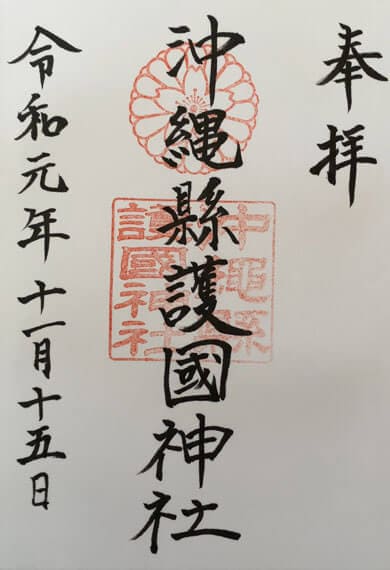 奉拝
沖縄縣護國神社
沖縄縣
護國神社
令和元年十一月十五日